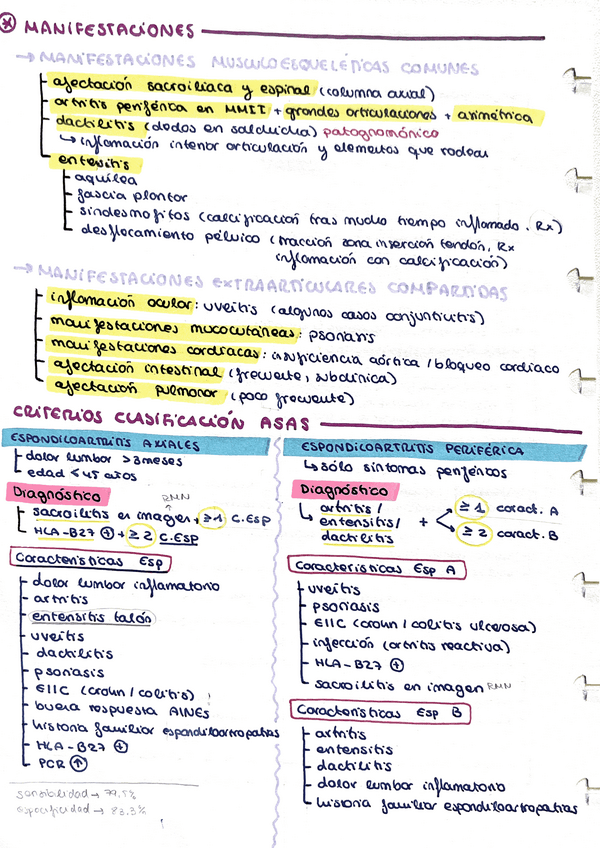 MANIFESTACIONES
→ MANIFESTACIONES MUSCULOESQUELÉTICAS COMUNES
afectación sacroiliaca y espinal (columna axial)
artritis periférica en MMII + grandes articulaciones + asimétrica
dactilitis (dedos en salchicha) patognomónico
↳ inflamación interior articulación y elementos que rodean
entesitis
aquílea
fascia plantar
sindesmofitos (calcificación tras mucho tiempo inflamado. Rx)
desflocamiento pélvico (tracción zona inserción tendón, Rx
inflamación con calcificación)
→ MANIFESTACIONES EXTRAARTICULARES COMPARTIDAS
inflamación ocular: uveitis (algunos casos conjuntivitis)
manifestaciones mucocutáneas: psoriasis
manifestaciones cardíacas: insuficiencia aórtica / bloqueo cardiaco
afectación intestinal (frecuente, subclínica)
afectación pulmonar (poco frecuente)
CRITERIOS CLASIFICACIÓN ASAS
ESPONDILOARTRITIS AXIALES
dolor lumbar >3meses
edad <45 años
Diagnóstico
RMN
sacroilitis en imagen + ≥1 C.ESP
HLA-B27 ⊕ + ≥2 C.ESP
Características Esp
dolor lumbar inflamatorio
artritis
entensitis talón
uveitis
dactilitis
psoriasis
EIIC (crohn / colitis)
buena respuesta AINES
historia familiar espondiloartropatias
HLA-B27 ⊕
PCR ↑
sensibilidad → 79.5%
especificidad → 83.3%
ESPONDILOARTRITIS PERIFÉRICA
↳ sólo síntomas periféricos
Diagnóstico
artritis /
entensitis /
dactilitis
+
≥1 caract. A
≥2 caract. B
Características Esp A
uveitis
psoriasis
EIIC (crohn / colitis ulcerosa)
infección (artritis reactiva)
HLA-B27 ⊕
sacroilitis en imagen RMN
Características Esp B
artritis
entensitis
dactilitis
dolor lumbar inflamatorio
historia familiar espondiloartropatias